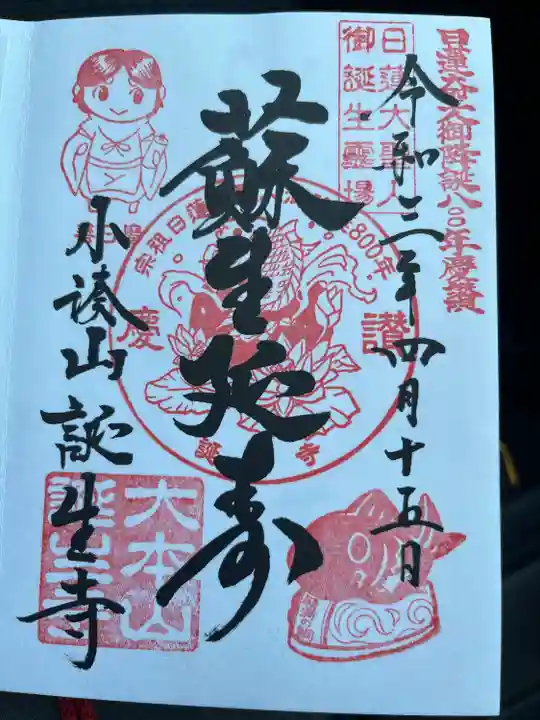 日蓮大聖人御降誕八〇〇年慶讃
日蓮大聖人
御誕生霊場
令和三年四月十五日
蘇生延寿
宗祖日蓮
800年
慶
讃
誕
寺
小湊山誕生寺
大本山
誕生寺